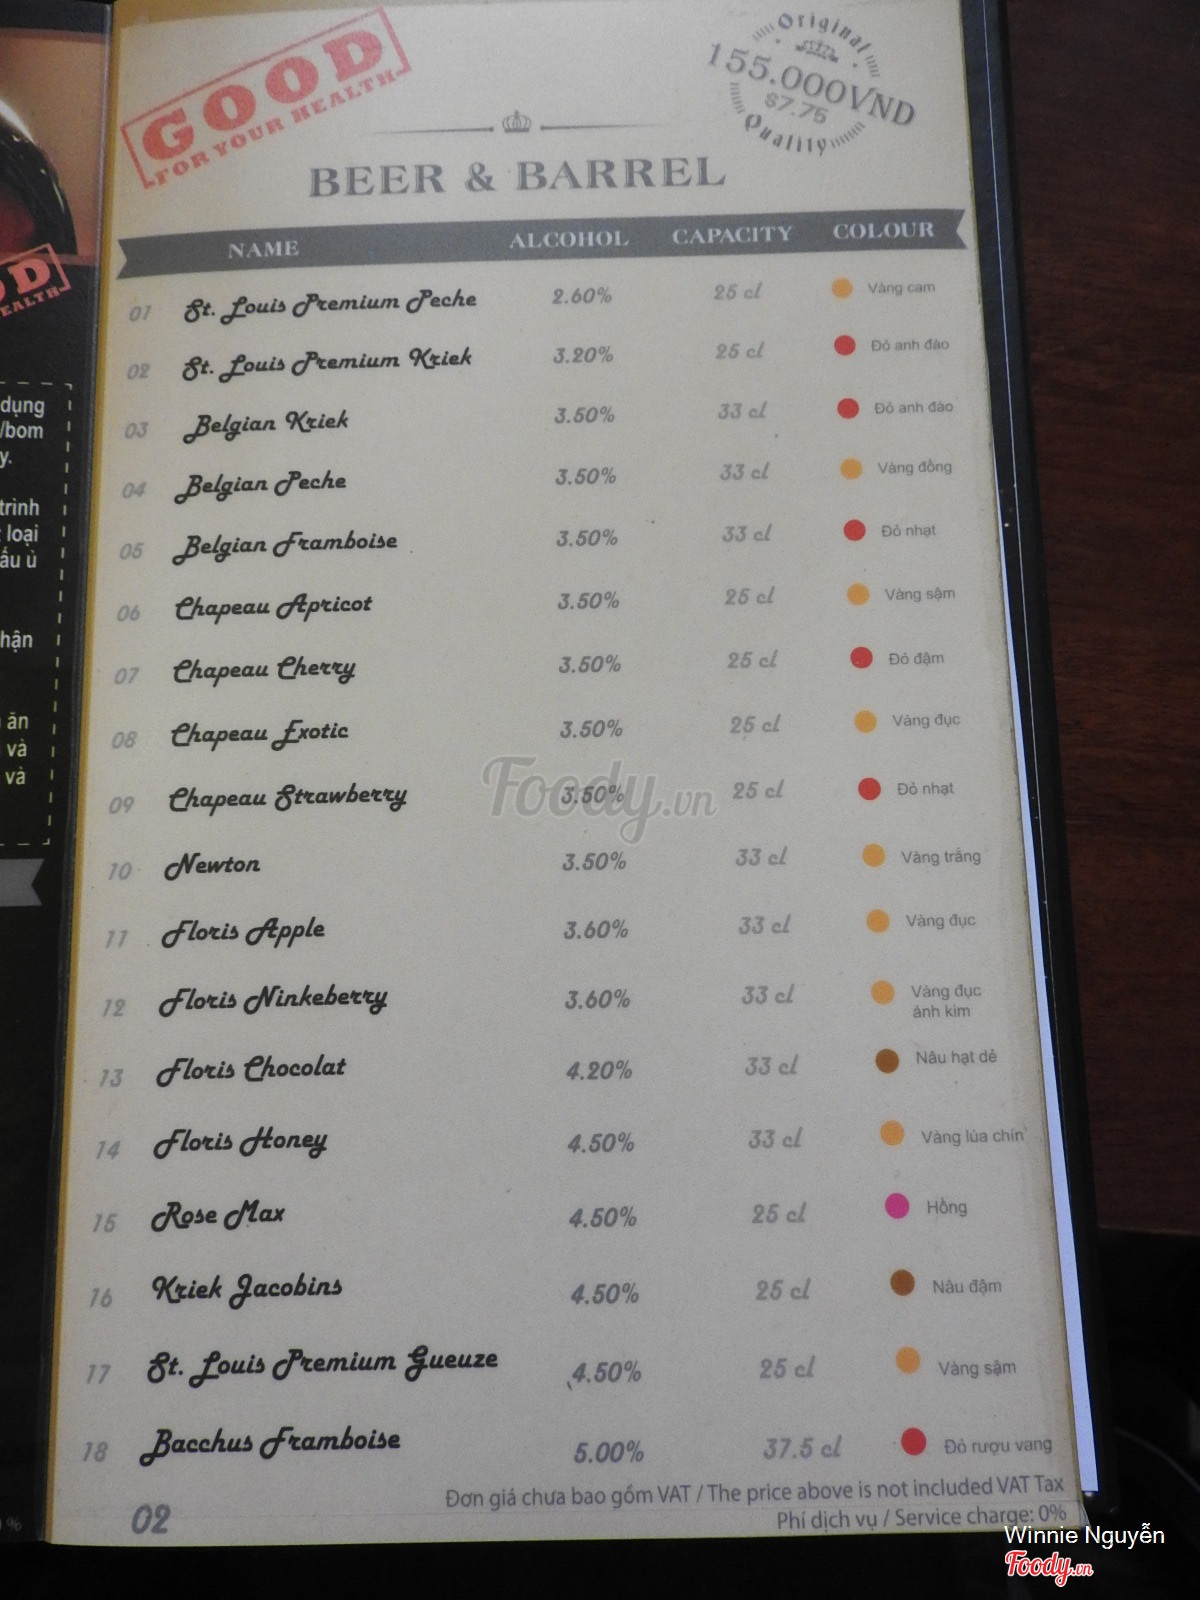 GOOD
FOR YOUR HEALTH
Original
155.000VND
$7.75
Quality
BEER & BARREL
NAME ALCOHOL CAPACITY COLOUR
01 St. Louis Premium Peche 2.60% 25 cl Vàng cam
02 St. Louis Premium Kriek 3.20% 25 cl Đỏ anh đào
03 Belgian Kriek 3.50% 33 cl Đỏ anh đào
04 Belgian Peche 3.50% 33 cl Vàng đồng
05 Belgian Framboise 3.50% 33 cl Đỏ nhạt
06 Chapeau Apricot 3.50% 25 cl Vàng sậm
07 Chapeau Cherry 3.50% 25 cl Đỏ đậm
08 Chapeau Exotic 3.50% 25 cl Vàng đục
09 Chapeau Strawberry 3.50% 25 cl Đỏ nhạt
10 Newton 3.50% 33 cl Vàng trắng
11 Floris Apple 3.60% 33 cl Vàng đục
12 Floris Ninkeberry 3.60% 33 cl Vàng đục
ánh kim
13 Floris Chocolat 4.20% 33 cl Nâu hạt dẻ
14 Floris Honey 4.50% 33 cl Vàng lúa chín
15 Rose Max 4.50% 25 cl Hồng
16 Kriek Jacobins 4.50% 25 cl Nâu đậm
17 St. Louis Premium Gueuze 4.50% 25 cl Vàng sậm
18 Bacchus Framboise 5.00% 37.5 cl Đỏ rượu vang
Đơn giá chưa bao gồm VAT / The price above is not included VAT Tax
Phí dịch vụ / Service charge: 0%
02
dụng
/bom
y.
trình
loại
ấu ù
hận
ăn
và
và
Foody.vn
Winnie Nguyễn
Foody.vn